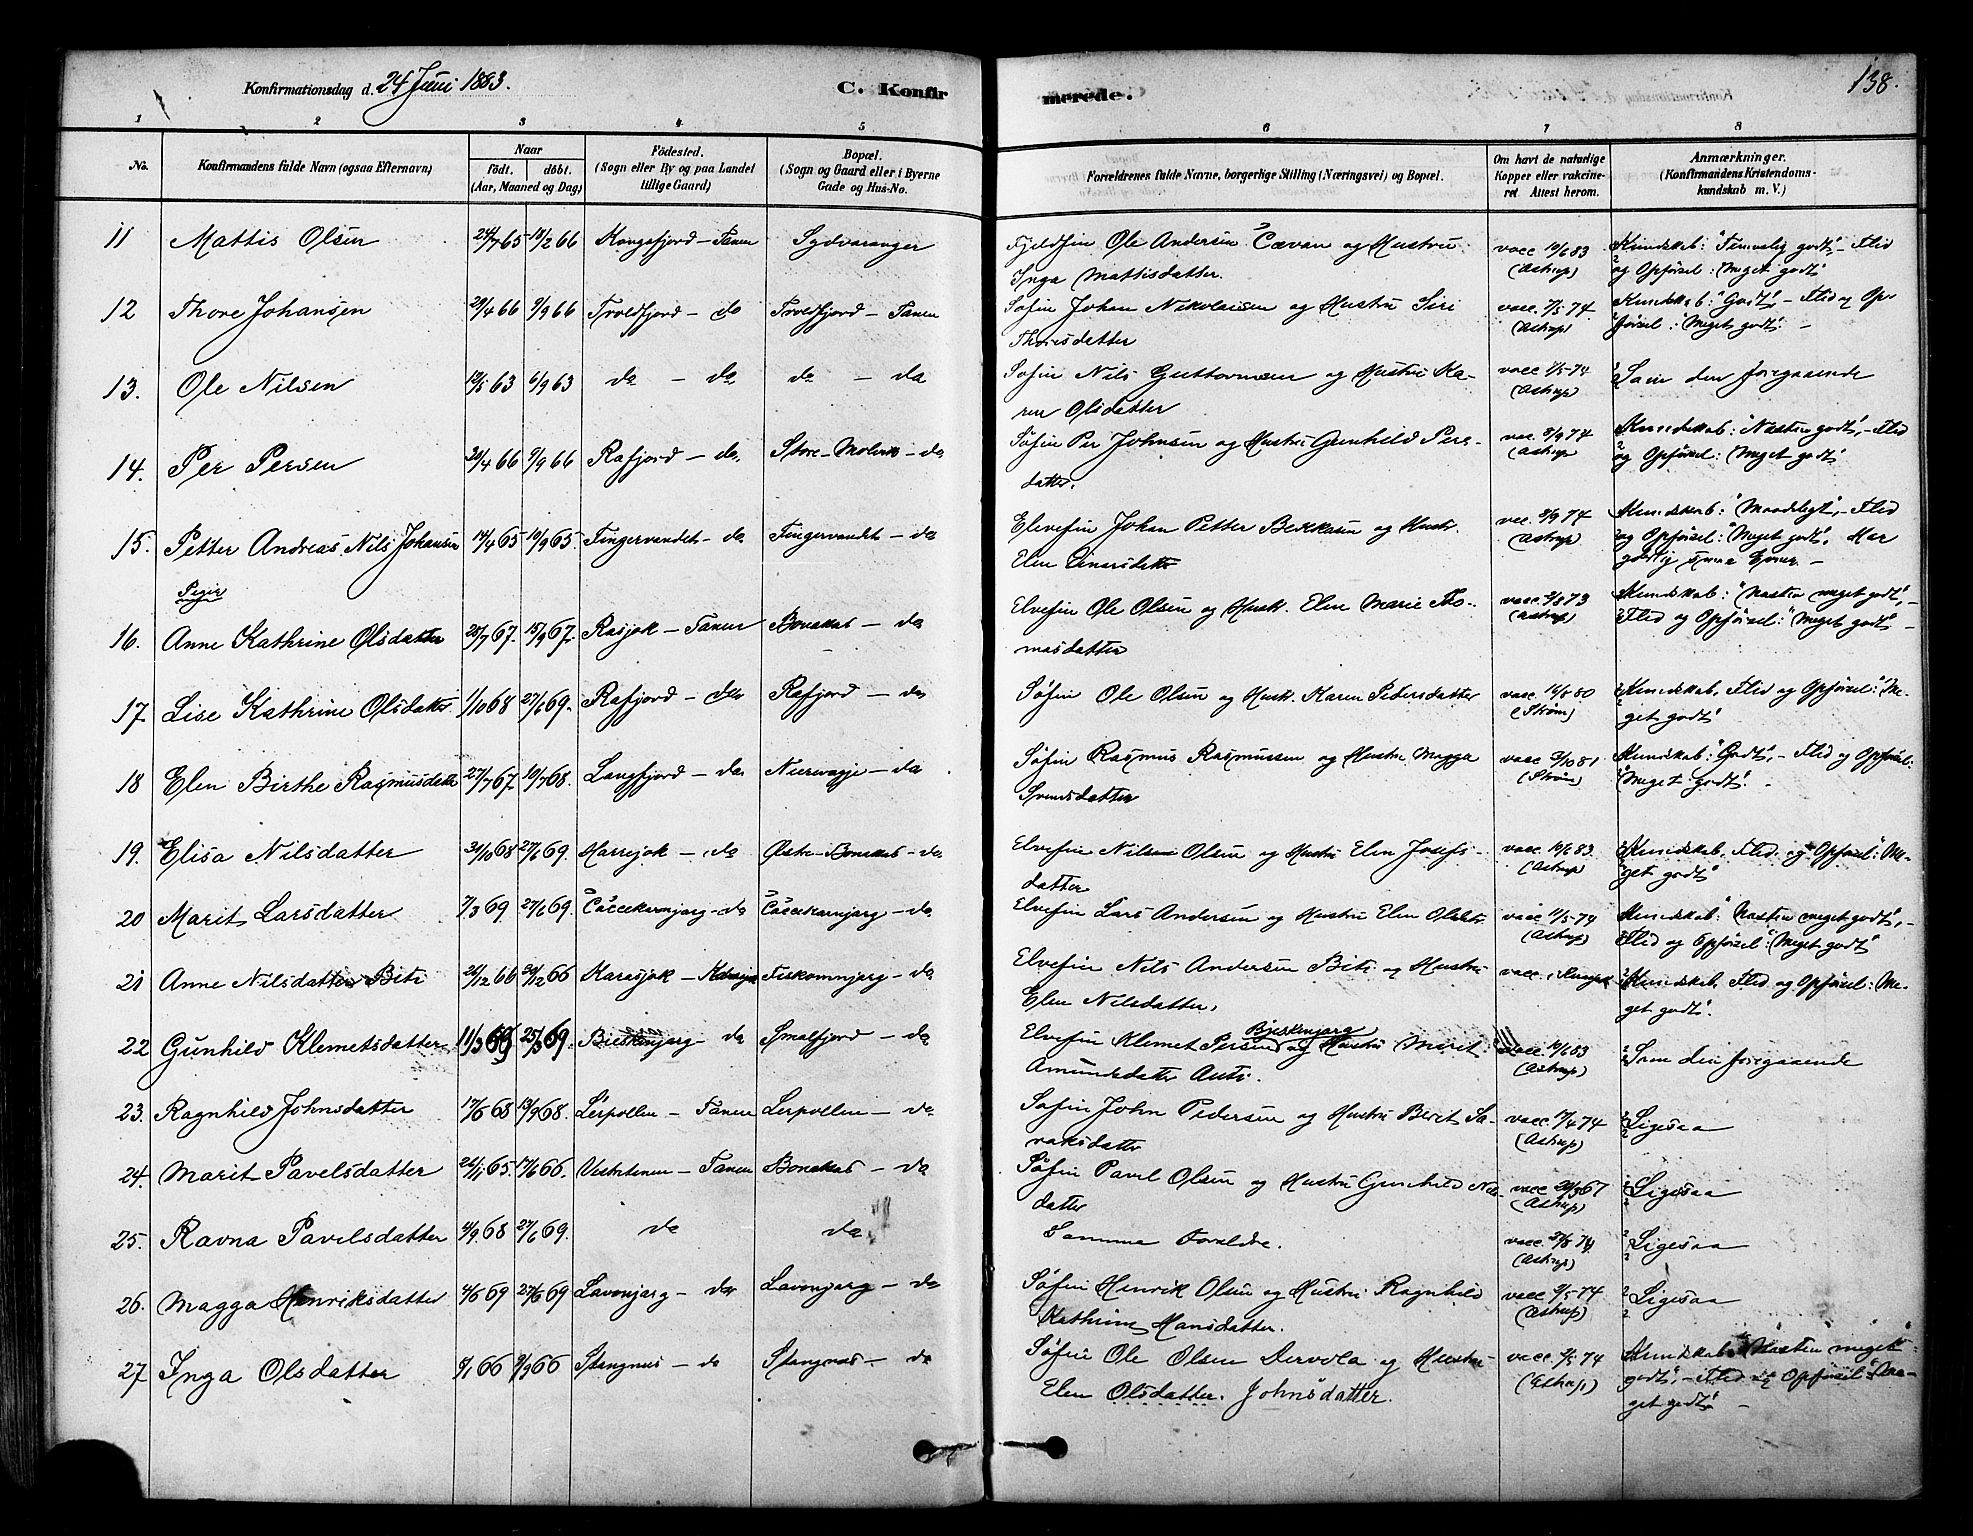 Konfirmationsdag d. 24 Juni 1883.
C. Konfir
merede.
138.
1 2 3 4 5 6 7 8
No.
Konfirmandens fulde Navn (ogsaa Efternavn)
Naar
födt. döbt.
(Aar, Maaned og Dag)
Födested.
(Sogn eller By og paa Landet
tillige Gaard)
Bopæl.
(Sogn og Gaard eller i Byerne
Gade og Hus-No.
Forældrenes fulde Navne, borgerlige Stilling (Næringsvei) og Bopæl.
Om havt de naturlige
Kopper eller vakcine-
ret Attest herom.
Anmærkninger.
(Konfirmandens Kristendoms-
kundskab m. V.)
11 Mattis Olsen 24/7 65 18/2 66 Kongsfjord - Tanen Sydvaranger Fjeldfin Ole Andersen Cævan og Hustru vacc 10/6 83 Kundskab: "Temmelig godt", - Flid
Inga Mattisdatter. (Astrup) og Opførsel: "Meget godt"
12 Thore Johansen 29/4 66 9/9 66 Troldfjord - do Troldfjord - Tanen Søfin Johan Nikolaisen og Hustru Siri vacc. 7/5 74 Kundskab: "Godt", - Flid og Op-
Thoresdatter (Astrup) førsel: "Meget godt". -
13. Ole Nilsen 12/5 63 6/9 63 do - do do - do Søfin Nils Guttormsen og Hustru Ka- vacc 11/5 74 Som den foregaaende
ren Olsdatter (Astrup)
14. Per Persen 30/4 66 9/9 66 Rafjord - do. Store-Molvik - do Søfin Per Johnsen og Hustru Gunhild Pers- vac. 8/9 74 Kundskab: "Næsten godt", - Flid
datter. (Astrup og Opførsel: "Meget godt"
15. Petter Andreas Nils Johansen 14/4 65 10/9 65. Fingervandet - do Fingervandt - do Elvefin Johan Petter Bekkasen og Hustr. vcc. 8/9 74 Kundskab: "Maadeligt", - Flid
Elen Einarsdatr (Astrup) og Opførsel: "Meget godt", Har
smaa Evner. -
Piger
16. Anne Kathrine Olsdatter 20/7 67. 15/9 67. Rasjok - Tanen Bonakas - do Elvefin Ole Olsen og Husk. Elen Marie Tho- vacc 2/8 73 Kundskab: "Næsten meget godt", -
masdatter (Astrup) Flid og Opførsel: "Meget godt" -
17. Lise Kathrine Olsdatter 1/10 68 27/6 69. Rafjord - do Rafjord - do Søfin Ole Olsen og Husk. Karen Pedersdatter vacc. 14/8 80 Kundskab, Flid og Opførsel: "Me-
(Strøm) get godt"
18 Elen Birthe Rasmusdatter 27/7 67. 19/7 68. Langfjord - do Nurvagge - do Søfin Rasmus Rasmussen og Hustru Magga vacc 3/10 81 Kundskab: "Godt", - Flid og Opførsel:
Svensdatter (Strøm) "Meget godt". -
19. Elisa Nilsdatter 30/10 68 27/6 69. Harrejok - do Østre-Bonakas - do Elvefin Nilsen Olsen og Hustru Elen Josefs- vacc. 10/6 83 Kundskab, Flid. og Opførsel: "Me-
datter (Astrup) get godt"
20 Marit Larsdatter 7/3 69 27/6 69. Caccekarnjarg - do Caccekarnjarg - do Elvefin Lars Andersen og Hustru Elen Olsdtr. vacc 11/5 74 Kundskab: "Næsten meget godt", -
(Astrup) Flid og Opførsel: "Meget godt"
21 Anne Nilsdatter Biti 20/12 66 26/12 66 Karasjok - Fiskomnjarg - do Elvefin Nils Andersen Biti og Hustru vacc. Kundskab, Flid og Opførsel: "Me-
Elen Nilsdatter, get godt".
22 Gunhild Klemetsdatter 11/3 69 25/3 69. Bieskenjarg - do Smalfjord - do Elvefin Klemet Persen Bjeskenjarg og Hustru Marit vacc. 10/6 83 Som den foregaaende
Amundsdatter Anti. (Astrup)
23. Ragnhild Johnsdatter 17/6 68 13/9 68. Lerpollen - Tanen Lerpollen - do Søfin John Pedersen og Hustru Berit Sa- vacc. 17/4 74 Ligesaa
raksdatter (Astrup)
24. Marit Pavelsdatter 26/1 65. 17/6 66. Vestertanen - Tanen Bonakas - do Søfin Pavel Olsen og Hustru Gunhild Nils- vacc 20/3 67 Ligesaa
datter (Astrup)
25. Ravna Pavelsdatter 4/9. 68 27/6 69. do do Samme Forældre. vacc 31/8 74 Ligesaa
(Astrup)
26. Magga Henriksdatter 4/6 69 27/6 69 Lavonjarg - do Lavonjarg - do Søfin Henrik Olsen og Hustru Ragnhild vacc 9/5 74 Ligesaa
Kathrine Hansdatter. (Astrup)
27 Inga Olsdatter 8/1 66 9/9 66 Stangnes - do Stangnes - do Søfin Ole Olsen Dervola og Hustru vacc. 5/5 74 Kundskab: "Næsten meget
Elen Olsdatter. Johnsdatter. (Astrup) godt", - Flid og Opførsel: "Me-
get godt" -